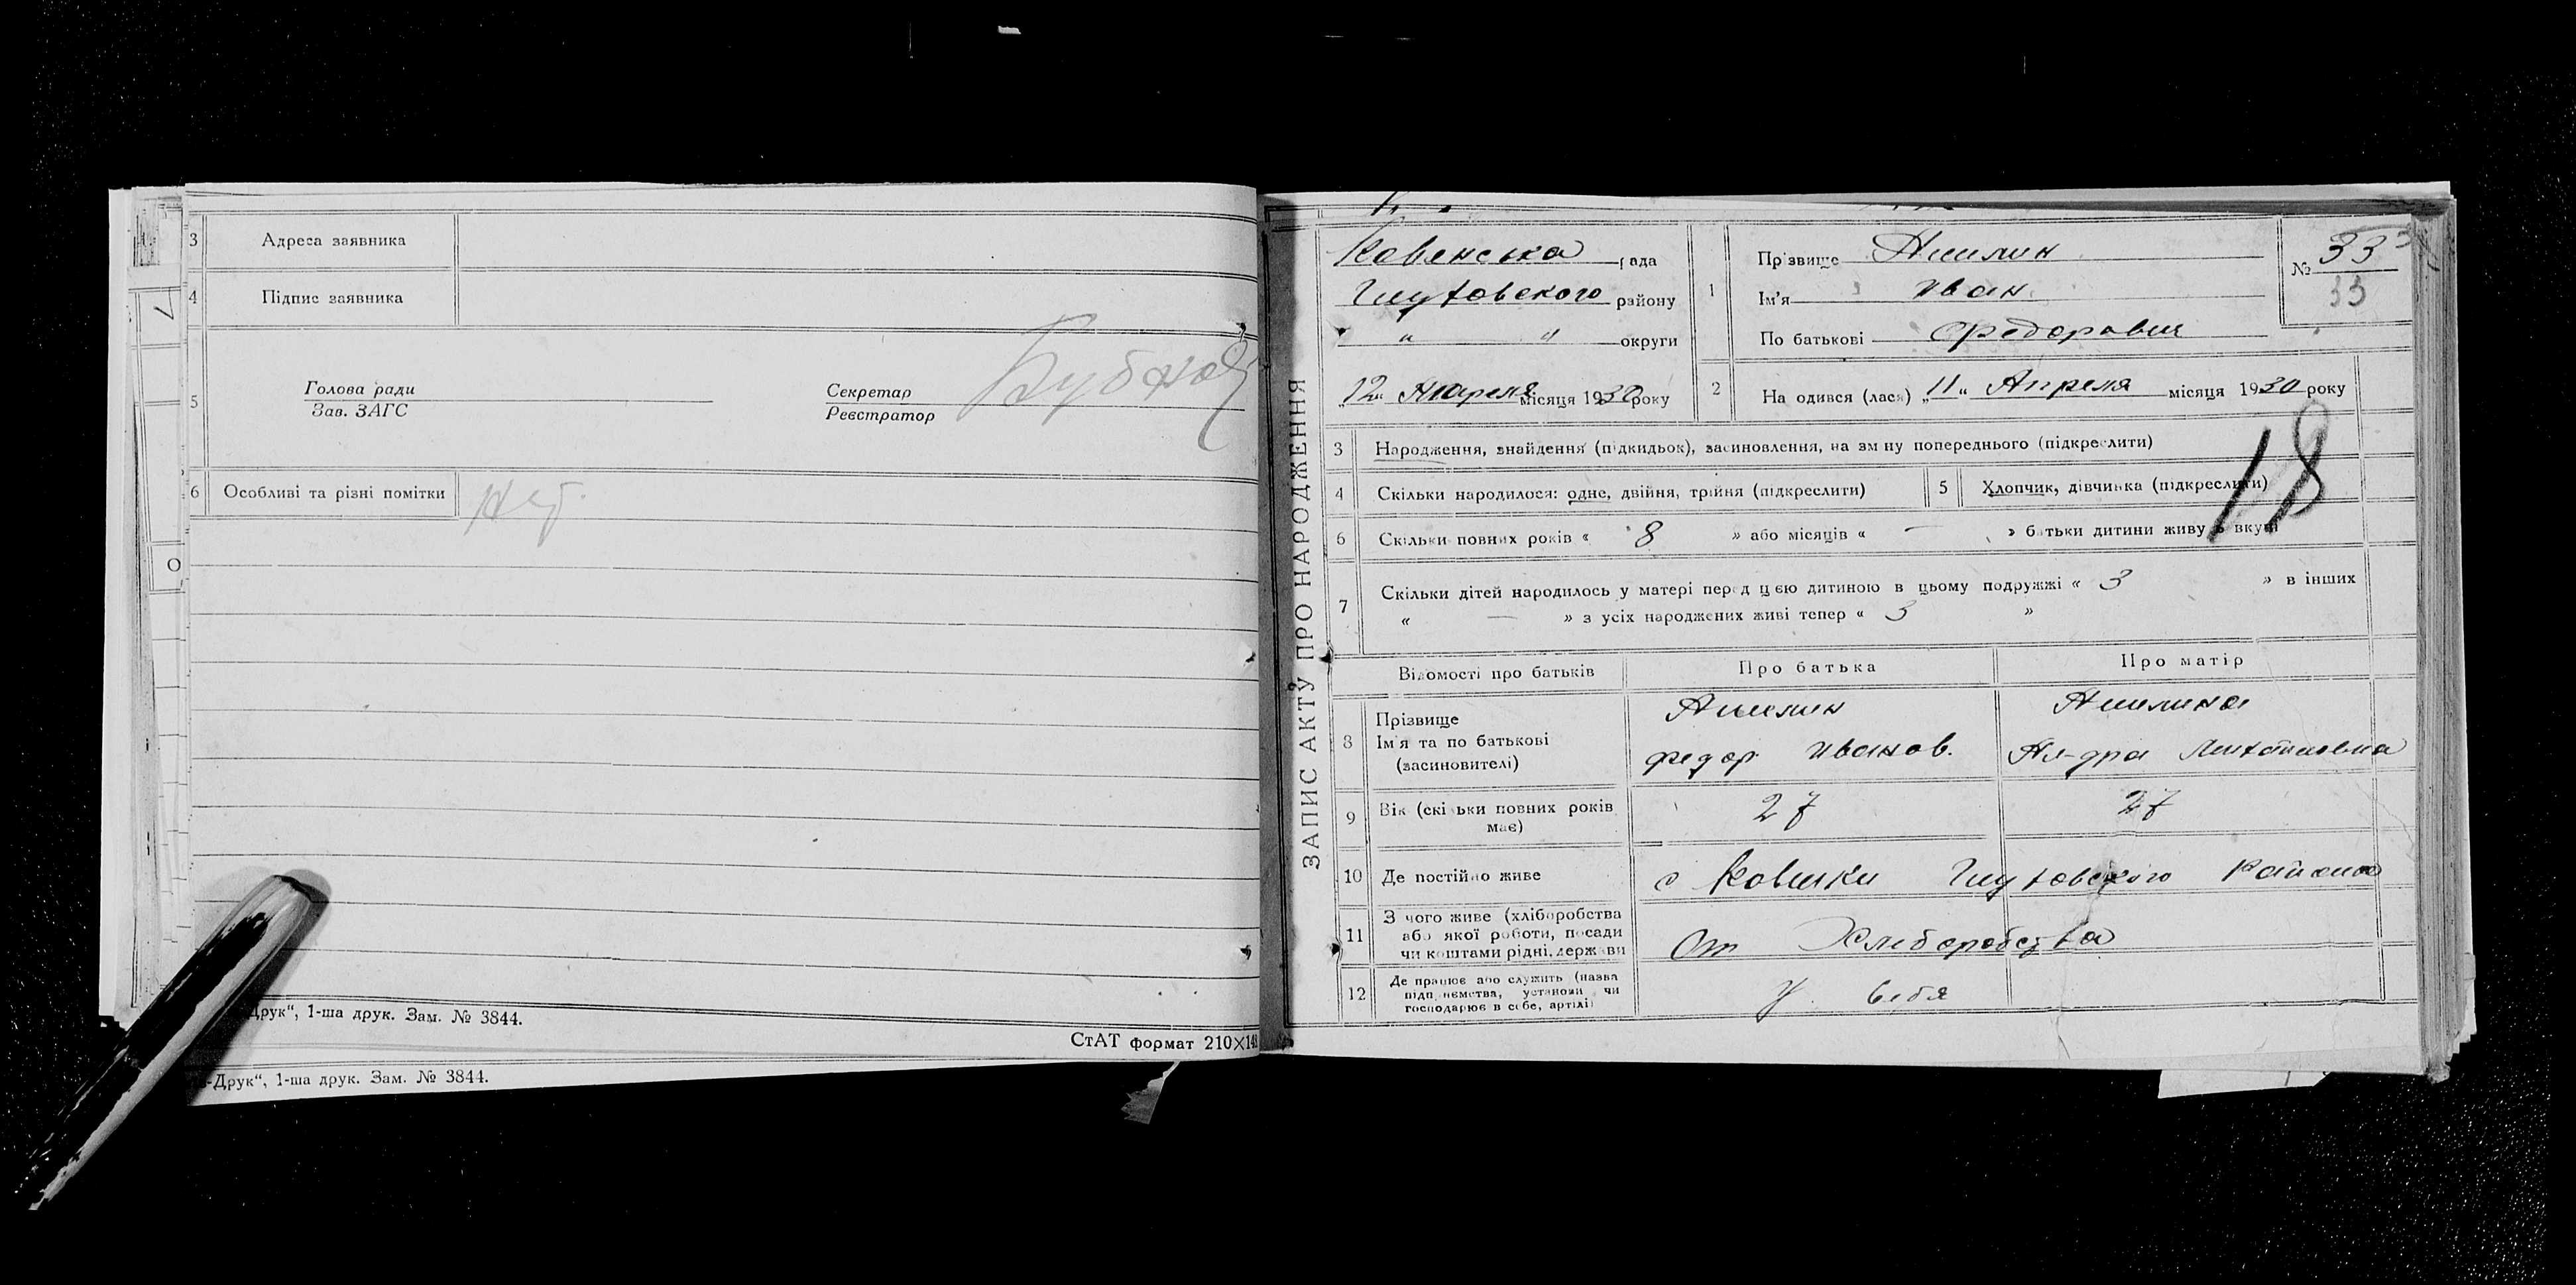 3 Адреса заявника
4 Підпис заявника
5 Голова ради
Зав. ЗАГС
Секретар
Реєстратор
6 Особливі та різні помітки нет.
Друк“, 1-ша друк. Зам. № 3844.
СтАТ формат 210×148
-Друк“, 1-ша друк. Зам. № 3844.
ЗАПИС АКТУ ПРО НАРОДЖЕННЯ
рада
району
" " округи
„12“ Апреля місяця 1930 року
1 Прізвище
Ім'я Иван
По батькові Федорович
№ 33
33
2 На одився (лася) „11“ Апреля місяця 1930 року
18
3 Народження, знайдення (підкидьок), засиновлення, на зм ну попереднього (підкреслити)
4 Скільки народилося: одне, двійня, трійня (підкреслити)
5 Хлопчик, дівчинка (підкреслити)
6 Скільки повних років « 8 » або місяців « — » батьки дитини живуть вкупі
7 Скільки дітей народилось у матері перед цією дитиною в цьому подружжі « 3 » в інших
« — » з усіх народжених живі тепер « 3 »
Відомості про батьків Про батька Про матір
8 Прізвище
Ім'я та по батькові Федор Иванов. Михайловна
(засиновителі)
9 Вік (скільки повних років 27 27
має)
10 Де постійно живе с района
11 З чого живе (хліборобства
або якої роботи, посади От Хлеборобства
чи коштами рідні, держави
12 Де працює або служить (назва
підприємства, установи чи У себя
господарює в себе, артілі)